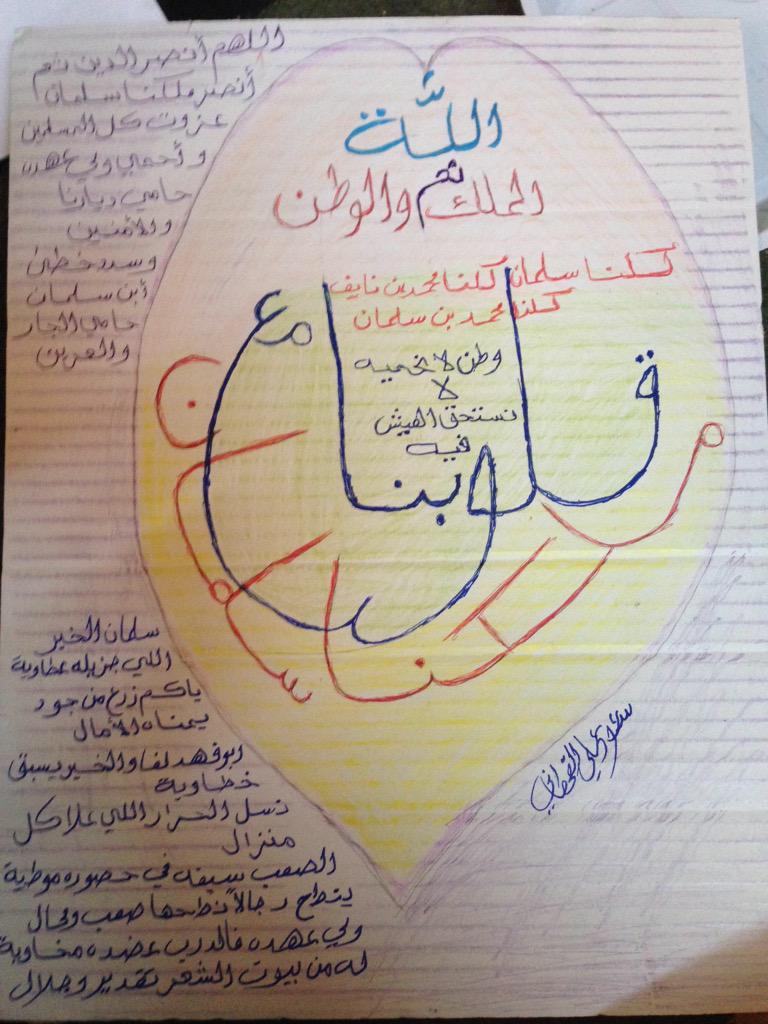 اللهم أنصر الدين ثم
أنصر ملكنا سلمان
عزوت كل المسلمين
وأحمي ولي عهده
حامي ديارنا
والأمنين
وسدد خطئ
أبن سلمان
حامي الجار
والعرين
اللَّة
ثم
الملك والوطن
كلنا سلمان كلنا محمد بن نايف
كلنا محمد بن سلمان
وطن لا نحميه
لا
نستحق العيش
فيه
قلوبنا مع
ملكنا سلمان
سلمان الخير
اللي جزيله عطاوية
ياكم زرع من جود
يمناه الأمال
ابو فهد لفا والخير يسبق
خطاوية
نسل الحرار اللي علا كل
منزال
الصعب سيفه في حصوره موطية
يتطاح رجالاً نطاحها صعب ومحال
ولي عهده فالدرب عضده مخاوية
له من بيوت الشعر تقدير وجلال
سعود علي القحطاني